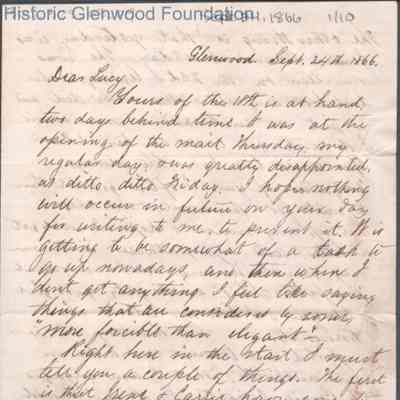 Historic Glenwood Foundation
Sept. 24, 1866 1/10
Glenwood Sept. 24th 1866.
Dear Lucy
Yours of the 18th is at hand
two days behind time. It was at the
opening of the mail Thursday, my
regular day, & was greatly disappointed,
as ditto, ditto Friday. I hope nothing
will occur in future on your day
for writing to me, to prevent it. It is
getting to be somewhat of a task to
go up nowadays, and then when I
don't get anything I feel like saying
things that are considered by some,
"more forcible than elegant".
Right here in the start I must
tell you a couple of things. The first
is that & Carrie have